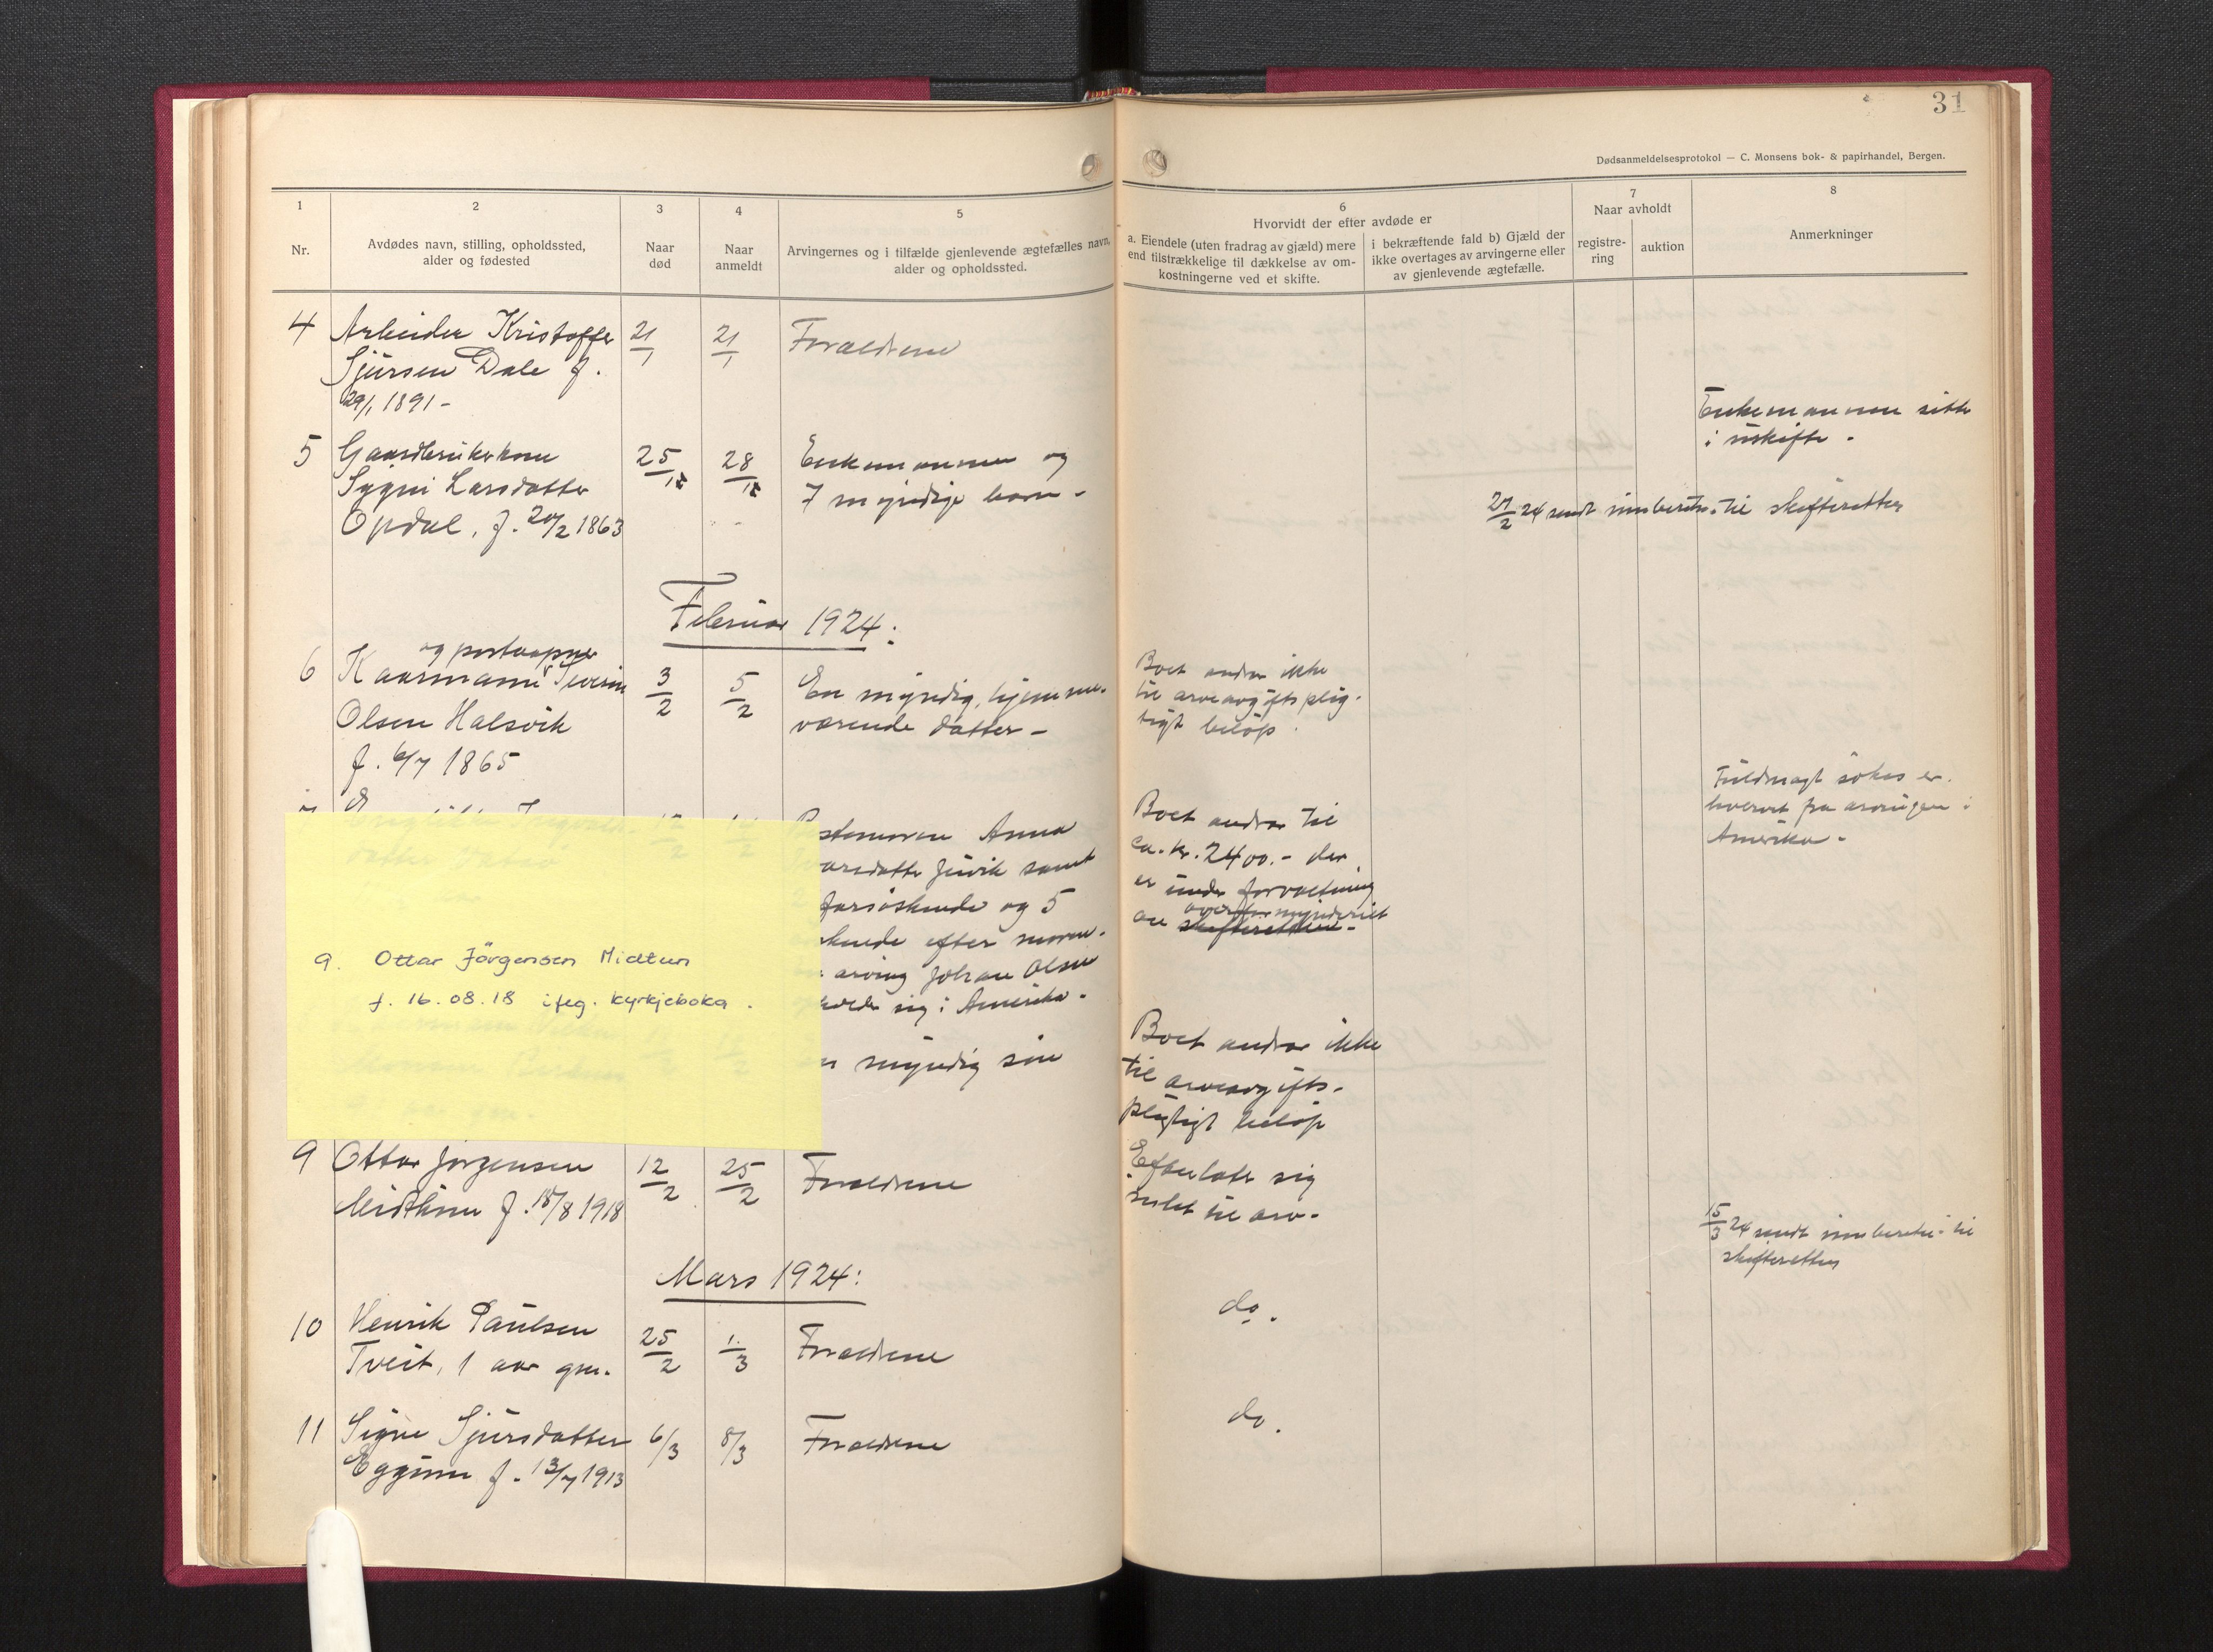 31
Dødsanmeldelsesprotokol — C. Monsens bok- & papirhandel, Bergen.
1
Nr.
2
Avdødes navn, stilling, opholdssted,
alder og fødested
3
Naar
død
4
Naar
anmeldt
5
Arvingernes og i tilfælde gjenlevende ægtefælles navn,
alder og opholdssted.
6
Hvorvidt der efter avdøde er
a. Eiendele (uten fradrag av gjæld) mere
end tilstrækkelige til dækkelse av om-
kostningerne ved et skifte.
i bekræftende fald b) Gjæld der
ikke overtages av arvingerne eller
av gjenlevende ægtefælle.
7
Naar avholdt
registre-
ring
auktion
8
Anmerkninger
4 Arbeider Kristoffer 21/1 21/1 Forældrene
Sjursen Dale f.
29/1 1891 -
Enkemannen sitter
i uskifte -
5 Gaardbrukerkone 25/12 28/12 Enkemannen og
Sygni Larsdatter 7 myndige barn -
Opdal, f. 20/2 1863
24 sendt innberetn. til skifteretten
Februar 1924:
og postaapner
6 Kaarmann Severin 3/2 5/2 En myndig, hjemme-
Olsen Halsvik værende datter -
f. 6/7 1865
Boet andrar ikke
til arveavgiftsplig-
tigt beløp.
Anna
samt
og 5
efter moren.
arving Johan Olsen
sig i Amerika -
Boet andrar til
ca. kr. 2400.- der
er under forvaltning
overformynderiet
av skifteretten -
Fuldmagt søkes er-
hvervet fra arvingen i
Amerika -
9. Ottar Jörgensen Midtun
f. 16.08.18 iføg. kyrkjeboka.
myndig søn
Boet andrar ikke
til arveavgifts-
pligtigt beløp
9 Ottar Jørgensen 12/2 25/2 Forældrene
Midthun f. 18/8 1918
Efterlater sig
intet til arv -
15/3 24 sendt innberetn. til
skifteretten
Mars 1924:
10 Henrik Paulsen 25/2 1/3 Forældrene
Tveit, 1 aar gm.
do.
11 Signe Sjursdatter 6/3 8/3 Forældrene
Eggum f. 13/7 1913
do.